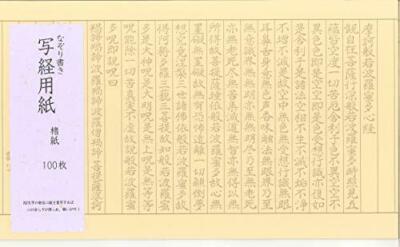 摩訶般若波羅蜜多心経
観自在菩薩行深般若波羅蜜多時照見五
蘊皆空度一切苦厄舎利子色不異空空不
異色色即是空空即是色受想行識亦復如
是舎利子是諸法空相不生不滅不垢不浄
不増不減是故空中無色無受想行識無眼
耳鼻舌身意無色声香味触法無眼界乃至
無意識界無無明亦無無明尽乃至無老死
亦無老死尽無苦集滅道無智亦無得以無
所得故菩提薩埵依般若波羅蜜多故心無
罣礙無罣礙故無有恐怖遠離一切顛倒夢
想究竟涅槃三世諸佛依般若波羅蜜多故
得阿耨多羅三藐三菩提故知般若波羅蜜
多是大神呪是大明呪是無上呪是無等等
呪能除一切苦真実不虚故説般若波羅蜜
多呪即説呪曰
羯諦羯諦波羅羯諦波羅僧羯諦菩提薩婆訶
なぞり書き
写経用紙
楮紙
100枚